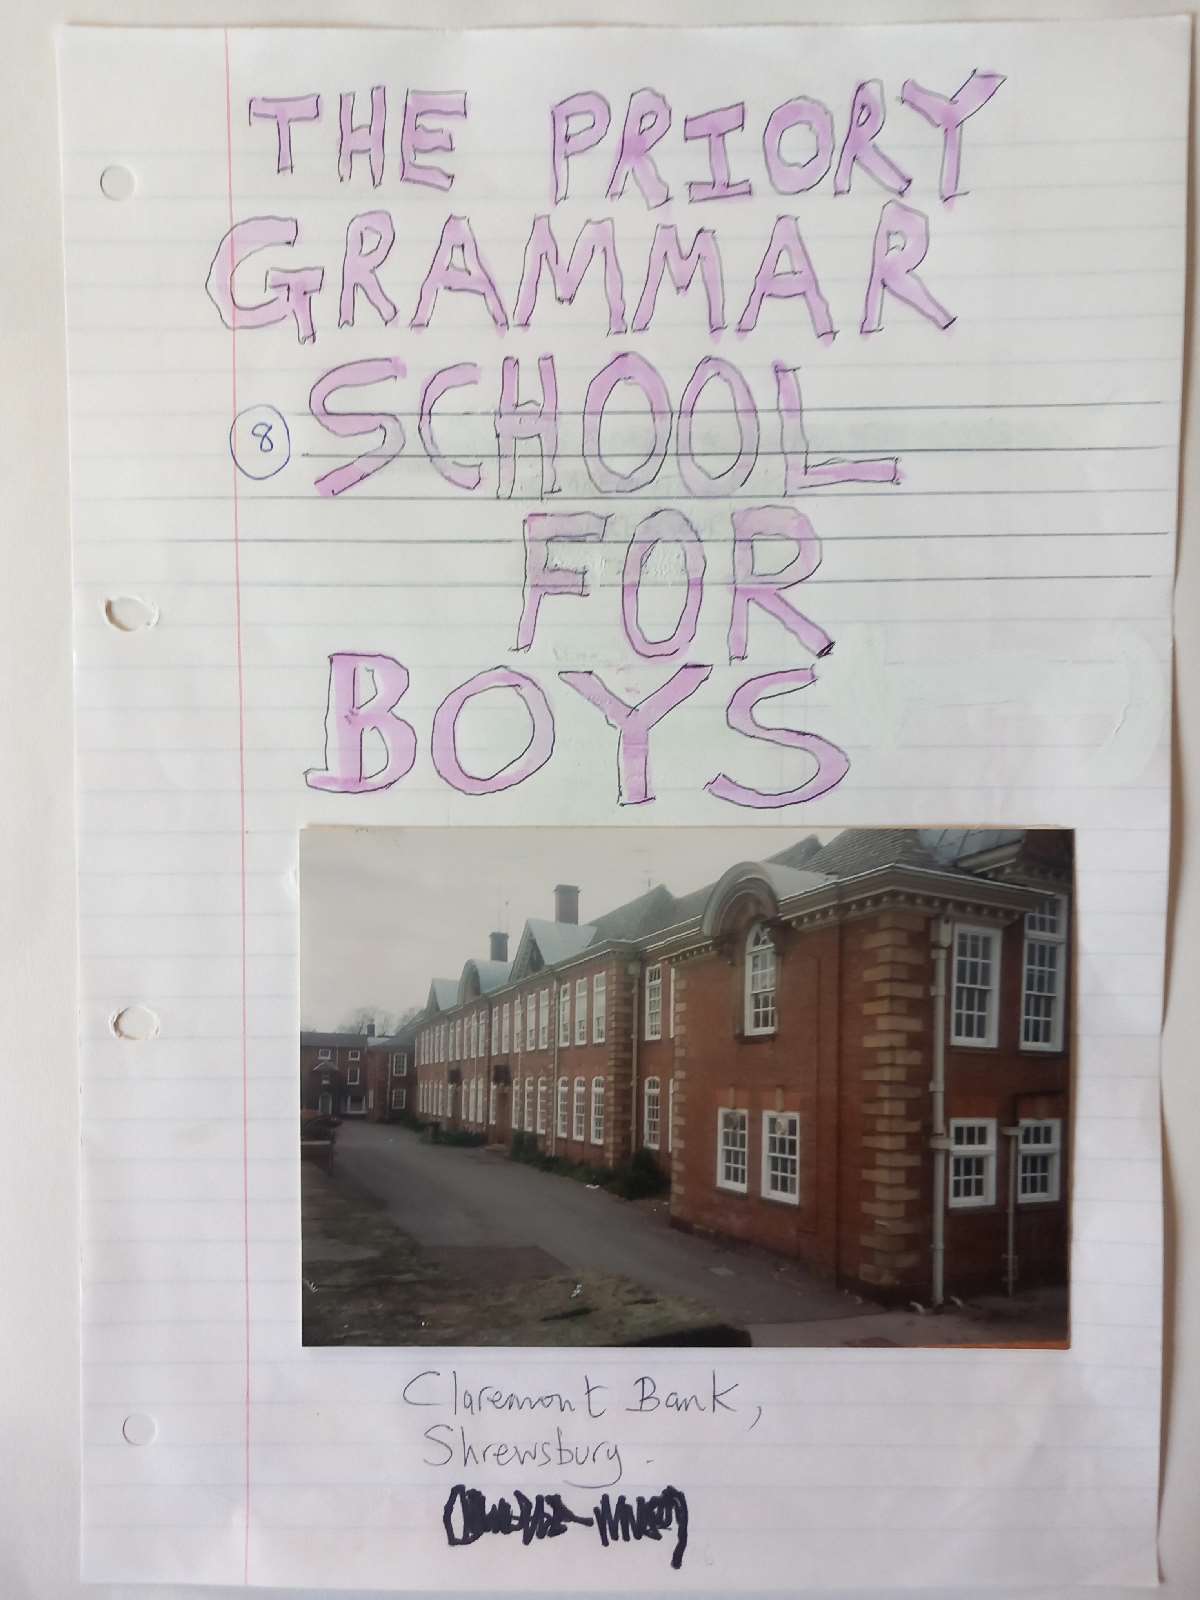 THE PRIORY
GRAMMAR
8 SCHOOL
FOR
BOYS
Claremont Bank,
Shrewsbury.